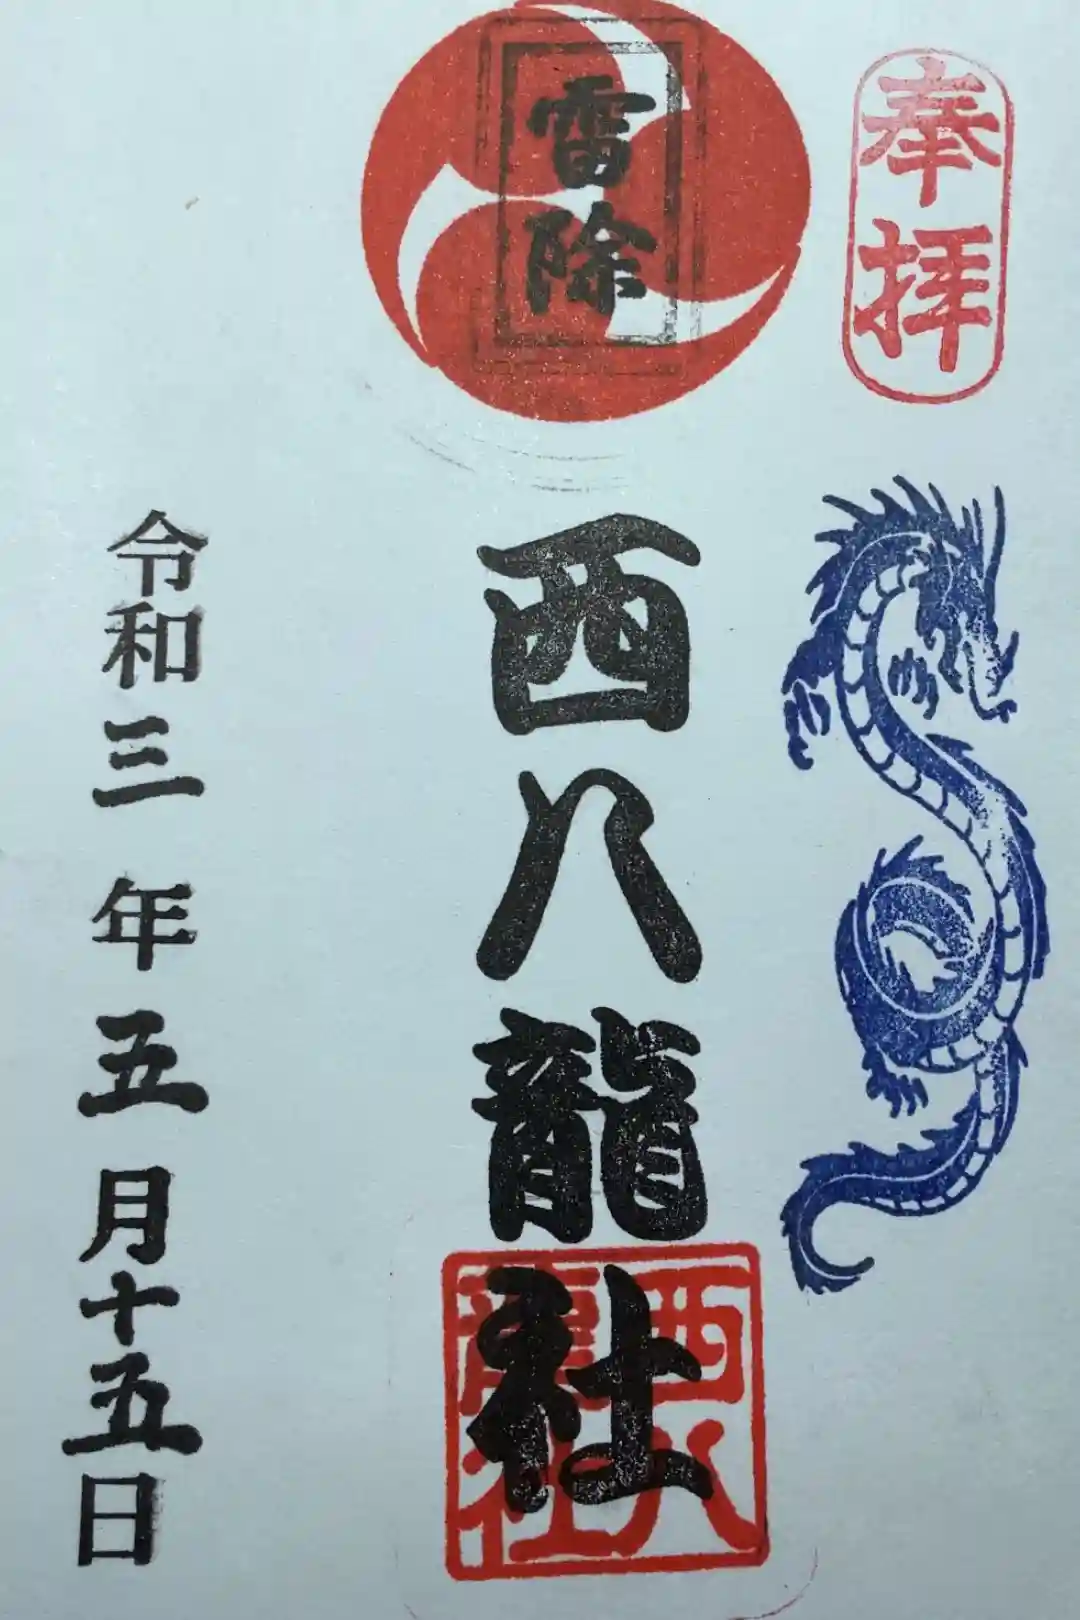 奉拝
雷除
西八龍社
西八
龍社
令和三年五月十五日